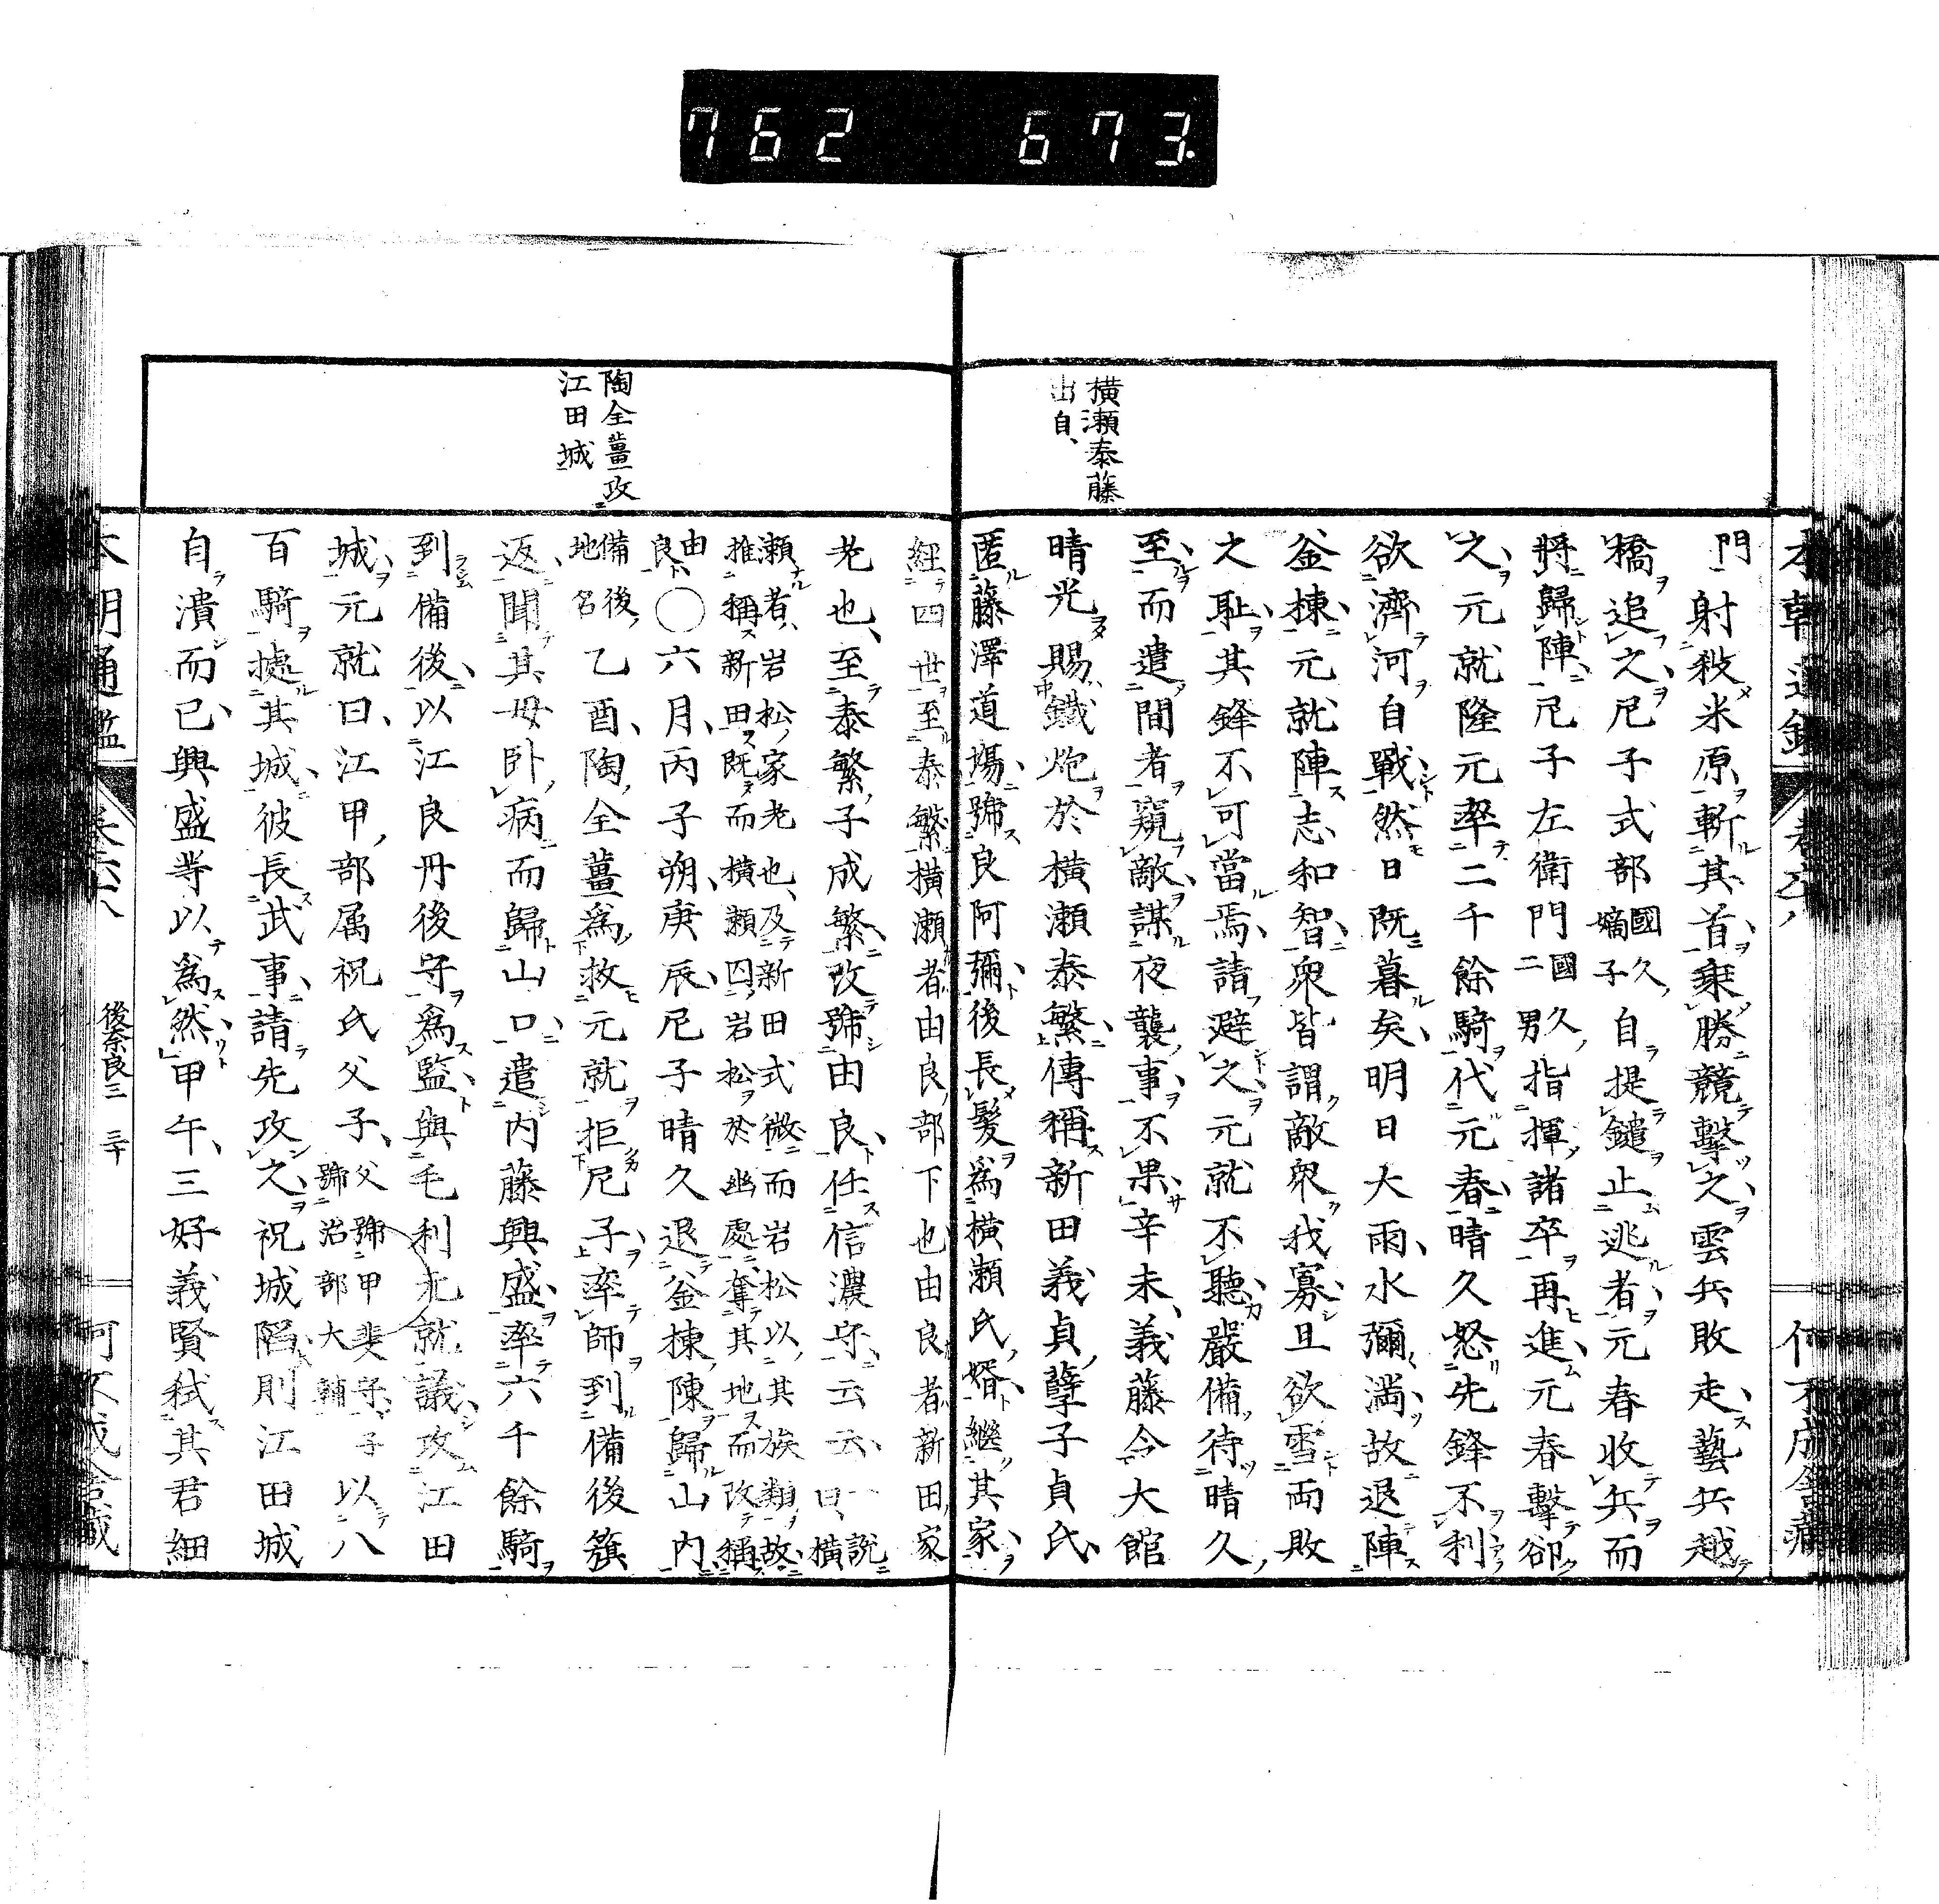 762 673.
横瀬泰藤
出自、
門射殺米原、斬其首、乗勝競撃之、雲兵敗走、藝兵越
橋追之、尼子式部國久嫡子自提鑓止逃者、元春收兵而
將歸陣、尼子左衛門國久二男指揮諸卒再進、元春撃卻
之、元就隆元率二千餘騎代元春、晴久怒先鋒不利
欲濟河自戰、然日既暮矣、明日大雨、水彌満、故退陣
釜棟、元就陣志和智、衆皆謂敵衆我寡、且欲雪両敗
之耻、其鋒不可當焉、請避之、元就不聽、嚴備待晴久
至、而遣間者窺敵、謀夜襲、事不果、辛未、義藤令大館
晴光賜鐵炮於横瀬泰繁、傳稱新田義貞孽子貞氏、
匿藤澤道場、號良阿彌、後長髪爲横瀬氏婿、繼其家、
陶全薑攻
江田城
經四世至泰繁、横瀬者由良部下也、由良者新田家
老也、至泰繁子成繁、改號由良、任信濃守、云云、一說曰、横
瀬者、岩松家老也、及新田式微、而岩松以其族類故、
推稱新田、既而横瀬囚岩松於幽處、奪其地、而改稱
由良、〇六月、丙子朔、庚辰、尼子晴久退釜棟陳歸山内、
備後地名、乙酉、陶全薑爲救元就拒尼子、率師到備後籏
返、聞其母卧病而歸山口、遣内藤興盛率六千餘騎
到備後、以江良丹後守爲監、與毛利元就議攻江田
城、元就曰、江甲部属祝氏父子、父號甲斐守、子號治部大輔以八
百騎據其城、彼長武事、請先攻之、祝城陷、則江田城
自潰而已、興盛等以爲然、甲午、三好義賢弑其君細
後奈良三 三十